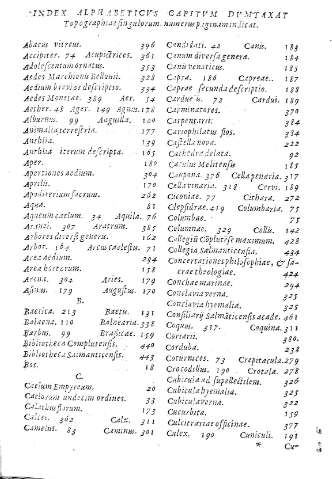 INDEX ALPHABETICVS CAPITVM DVMTAXAT
Topographiae singulorum. numerus paginam indicat.
Abacus vitreus. 396
Accipiter. 74 Acupictrices. 361
Adolescentum ornatus. 353
Aedes Marchionis Bellouii. 328
Aedium breuior descriptio. 334
Aedes Monetae. 389 Aer. 34
Aether. 48 Ager. 149 Agnus. 178
Alburnus. 99 Anguilla. 100
Animalia terrestria. 177
Aurelia. 139
Aurelia iterum descripta. 165
Aper. 180
Apertiones aedium. 304
Aprilis. 170
Apoditerium sacrum. 262
Aqua. 81
Aquaeum caelum. 34 Aquila. 76
Aranei. 367 Aratrum. 385
Arbores diuersi generis. 162
Arbor. 164. Arcus caelestis. 71
Area aedium. 294
Area histrorum. 158
Arcus. 304 Aries. 179
Asinus. 179 Augustus. 170
B.
Baetica. 213 Baetus. 131
Balaena. 110 Balnearia. 338
Barbus. 99 Brassicae. 159
Bibliotheca Complutensis. 440
Bibliotheca Salmanticensis. 443
Bos. 18
C.
Caelum Empyreum. 20
Caelorum undecim ordines. 33
Calathus florum. 173
Calices. 362 Calx. 311
Camelus. 83 Caminus. 301
Candidati. 42 Canis. 183
Canum diuersa genera. 184
Canis venaticus. 185
Capra. 186 Capreae. 187
Caprae secunda descriptio. 188
Carduus. 72 Cardui. 189
Carminatores. 370
Carpentarii. 384
Cariophilus flos. 384
Castella noua. 222
Cathedra delata. 92
Catulus Melitensis 185
Campana. 376 Cella penaria. 317
Cella vinaria. 318 Cerui. 189
Ciconiae. 77 Cithara. 272
Clepsidrae. 419 Columbaria. 75
Columbae. 75
Columnae. 329 Collis. 142
Collegiū Cōplutēse maximum. 428
Collegia Salmanticensia. 434
Concertationes philosophiae, & sa-
crae theologiae. 424
Conchae marinae. 294
Conclauia verna. 325
Conclauia hyemalia. 325
Consiliarij Salmāticensis acade. 461
Coquus. 317. Coquina. 311
Coriarii. 380.
Corduba. 238
Coturnices. 73 Crepitacula. 279
Crocodilus. 190 Crotala. 278
Cubicula ad supellectilem. 326
Cubicula hyemalia. 325
Cubicula verna. 322
Cucurbita. 159
Cultrariae officinae. 377
Culex. 190 Cuniculi. 191
* Cu-